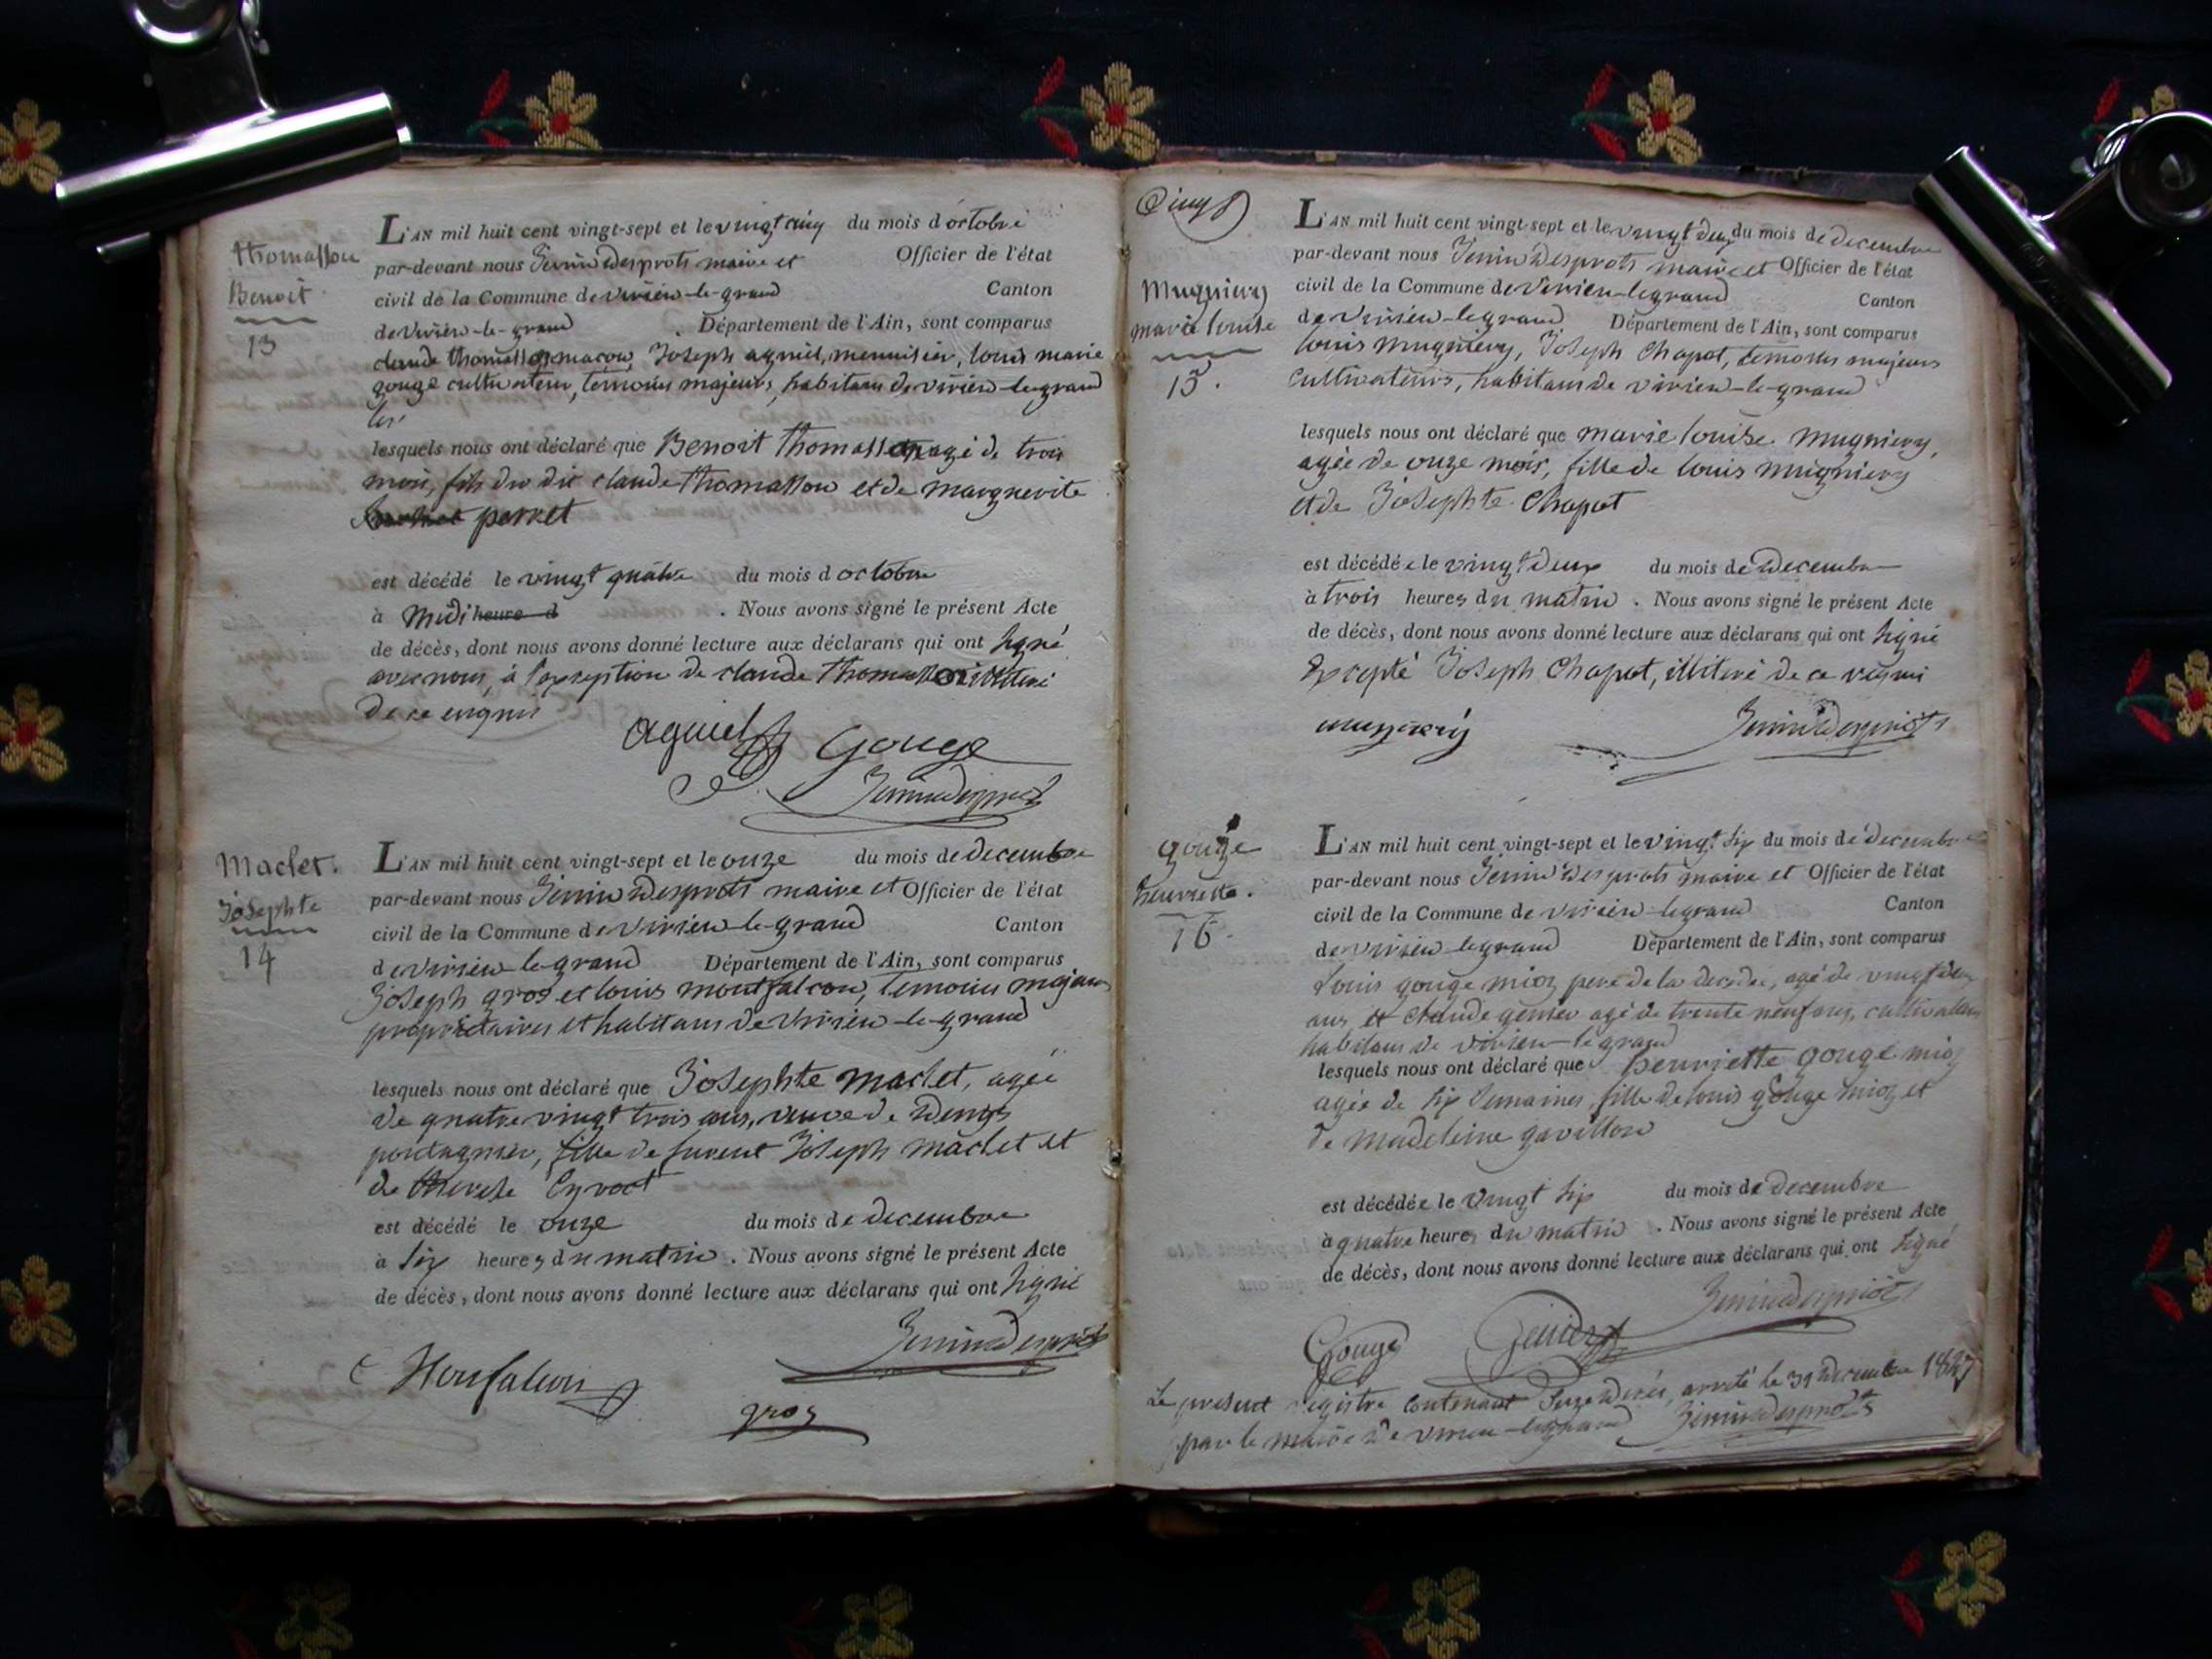 thomasson
Benoit
13
L'AN mil huit cent vingt-sept et le vingt cinq du mois d'octobre
par-devant nous Jenin Desprots maire et Officier de l'état
civil de la Commune de virieu-le-grand Canton
de virieu-le-grand. Département de l'Ain, sont comparus
claude thomasson macon, Joseph agniel, menuisier, louis marie
gouge cultivateur, temoins majeurs, habitans de virieu-le-grand
les
lesquels nous ont déclaré que Benoit thomasson agé de trois
mois, fils du dit claude thomasson et de marguerite
perret
est décédé le vingt quatre du mois d'octobre
à midi heure d. Nous avons signé le présent Acte
de décès, dont nous avons donné lecture aux déclarans qui ont signé
avec nous, à l'exception de claude thomasson illiteré
de ce enquis
agniel gouge
Jenin Desprots
Maclet.
Josephte
14
L'AN mil huit cent vingt-sept et le onze du mois de decembre
par-devant nous Jenin Desprots maire et Officier de l'état
civil de la Commune de virieu-le-grand Canton
de virieu-le-grand Département de l'Ain, sont comparus
Joseph gros et louis montfalcon, temoins majeurs
proprietaires et habitans de virieu-le-grand
lesquels nous ont déclaré que Josephte maclet, agée
de quatre vingt trois ans, veuve de Denis
fille de furent Joseph maclet et
de therese
est décédé le onze du mois de decembre
à six heures du matin. Nous avons signé le présent Acte
de décès, dont nous avons donné lecture aux déclarans qui ont signé
Jenin Desprots
Monfalcon
gros
Mugniery
marie louise
15.
L'AN mil huit cent vingt-sept et le vingt deux du mois de decembre
par-devant nous Jenin Desprots maire et Officier de l'état
civil de la Commune de virieu-legrand Canton
de virieu-legrand Département de l'Ain, sont comparus
louis mugniery, Joseph chapot, temoins majeurs
cultivateurs, habitans de virieu-le-grand
lesquels nous ont déclaré que marie louise mugniery,
agée de onze mois, fille de louis mugniery
et de Josephte Chapot
est décédée le vingt deux du mois de decembre
à trois heures du matin. Nous avons signé le présent Acte
de décès, dont nous avons donné lecture aux déclarans qui ont signé
excepté Joseph Chapot, illiteré de ce requis
mugniery Jenin Desprots
gouge
henriette.
16.
L'AN mil huit cent vingt-sept et le vingt six du mois de decembre
par-devant nous Jenin Desprots maire et Officier de l'état
civil de la Commune de virieu-legrand Canton
de virieu-legrand Département de l'Ain, sont comparus
louis gouge mioz pere de la decedée, agé de vingt deux
ans et claude genier agé de trente neuf ans, cultivateurs
habitans de virieu-le grand
lesquels nous ont déclaré que henriette gouge mioz
agée de six semaines, fille de louis gouge mioz et
de madeleine gavillon
est décédée le vingt six du mois de decembre
à quatre heures du matin. Nous avons signé le présent Acte
de décès, dont nous avons donné lecture aux déclarans qui ont signé
Jenin Desprots
Gouge Genier
Le present registre contenant seize decès, arreté le 31 decembre 1827
par le maire de virieu-legrand Jenin Desprots